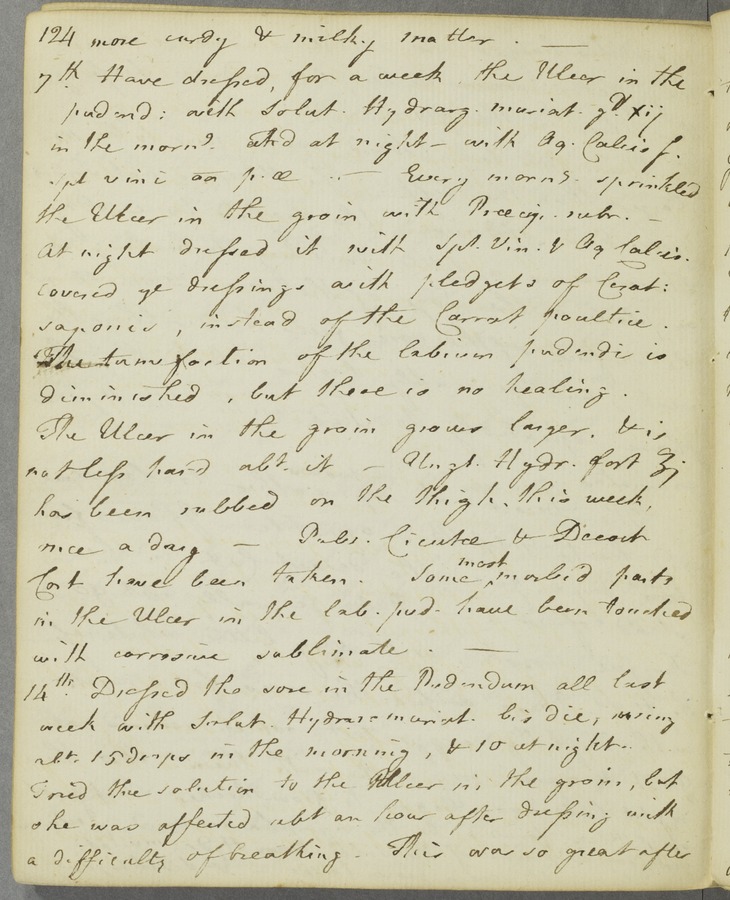 124 more curdy & milky matter. —
7th Have dressed, for a week, the Ulcer in the
pudend: with Solut. Hydrarg. muriat. gtt xij
in the morng. And at night – with Aq. Calcis f.
spt vini aa p. æ — Every morng. sprinkled
the Ulcer in the groin with Præcip. rubr. —
At night dressed it with Spt. Vin. & Aq Calcis.
covered ye dressings with pledgets of Cerat:
saponis, instead of the Carrot poultice.
The tumefaction of the labium pudendi is
diminished, but there is no healing.
The Ulcer in the groin grows larger, & is
not less hard abt. it – Ungt. Hydr. fort ʒj
has been rubbed on the thigh, this week,
once a day — Pulv. Cicutæ & Decoct
Cort have been taken. Some most morbid parts
in the Ulcer in the lab. pud. have been touched
with corrosive sublimate. —
14th. Dressed the sore in the Pudendum all last
week with Solut. Hydrarg muriat. bis die, using
abt. 15 drops in the morning, & 10 at night.
Tried the solution to the Ulcer in the groin, but
she was affected abt an hour after dressing with
a difficulty of breathing. This was so great after